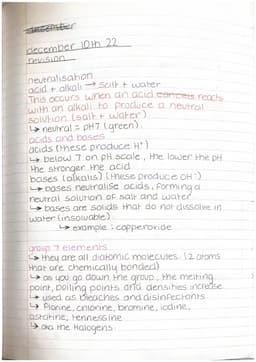 december 10th 22
revision
neutralisation
acid + alkali → salt + water
This occurs when an acid cancels reacts
with an alkali to produce a neutral
solution (salt + water)
↳ neutral = pH7 (green)
acids and bases
acids (these produce H⁺)
↳ below 7 on pH scale, the lower the pH
the stronger the acid
bases (alkalis) (these produce OH⁻)
↳ bases neutralise acids, forming a
neutral solution of salt and water
↳ bases are solids that do not dissolve in
water (insoluable)
↳ example: copper oxide
group 7 elements
↳ they are all diatomic molecules (2 atoms
that are chemically bonded)
↳ as you go down the group, the melting
point, boiling points and densities increase
↳ used as bleaches and disinfectants
↳ flourine, chlorine, bromine, iodine,
astatine, tennessine
↳ aka the Halogens